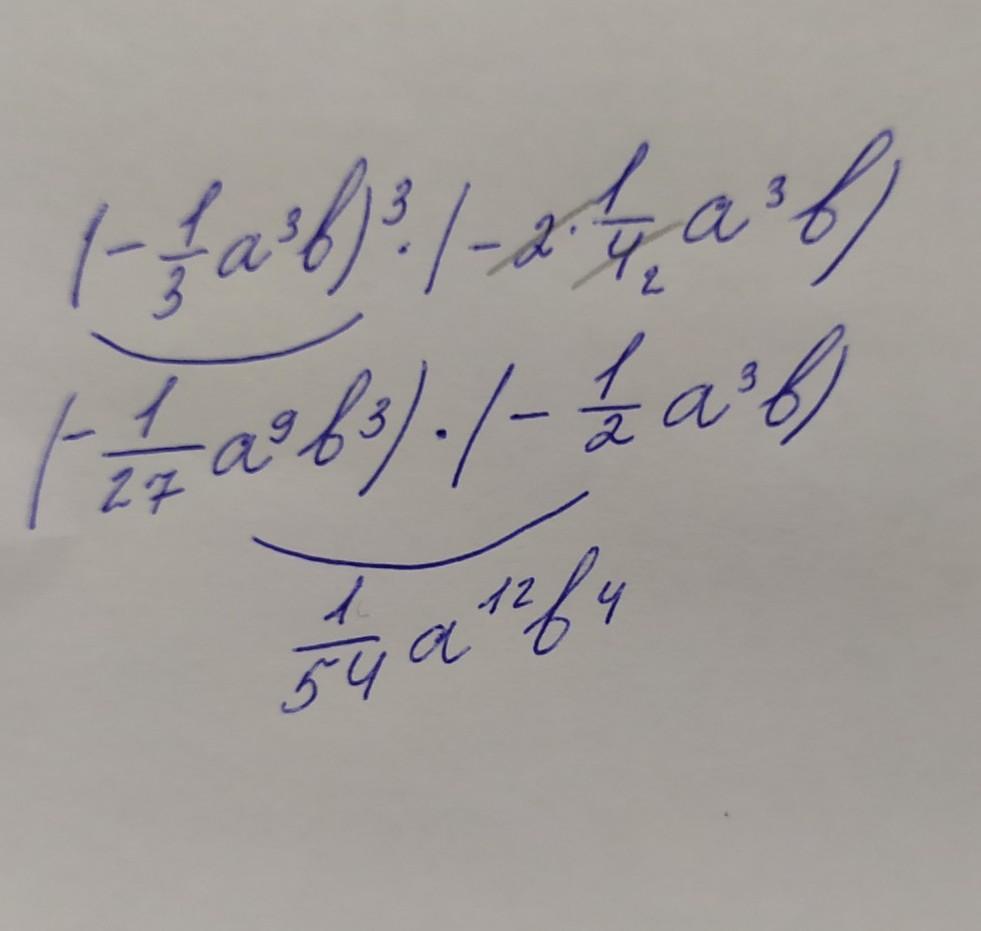 (-1/3 a³b)³ · (-2 · 1/4 2 a³b)
(-1/27 a⁹b³) · (-1/2 a³b)
1/54 a¹²b⁴